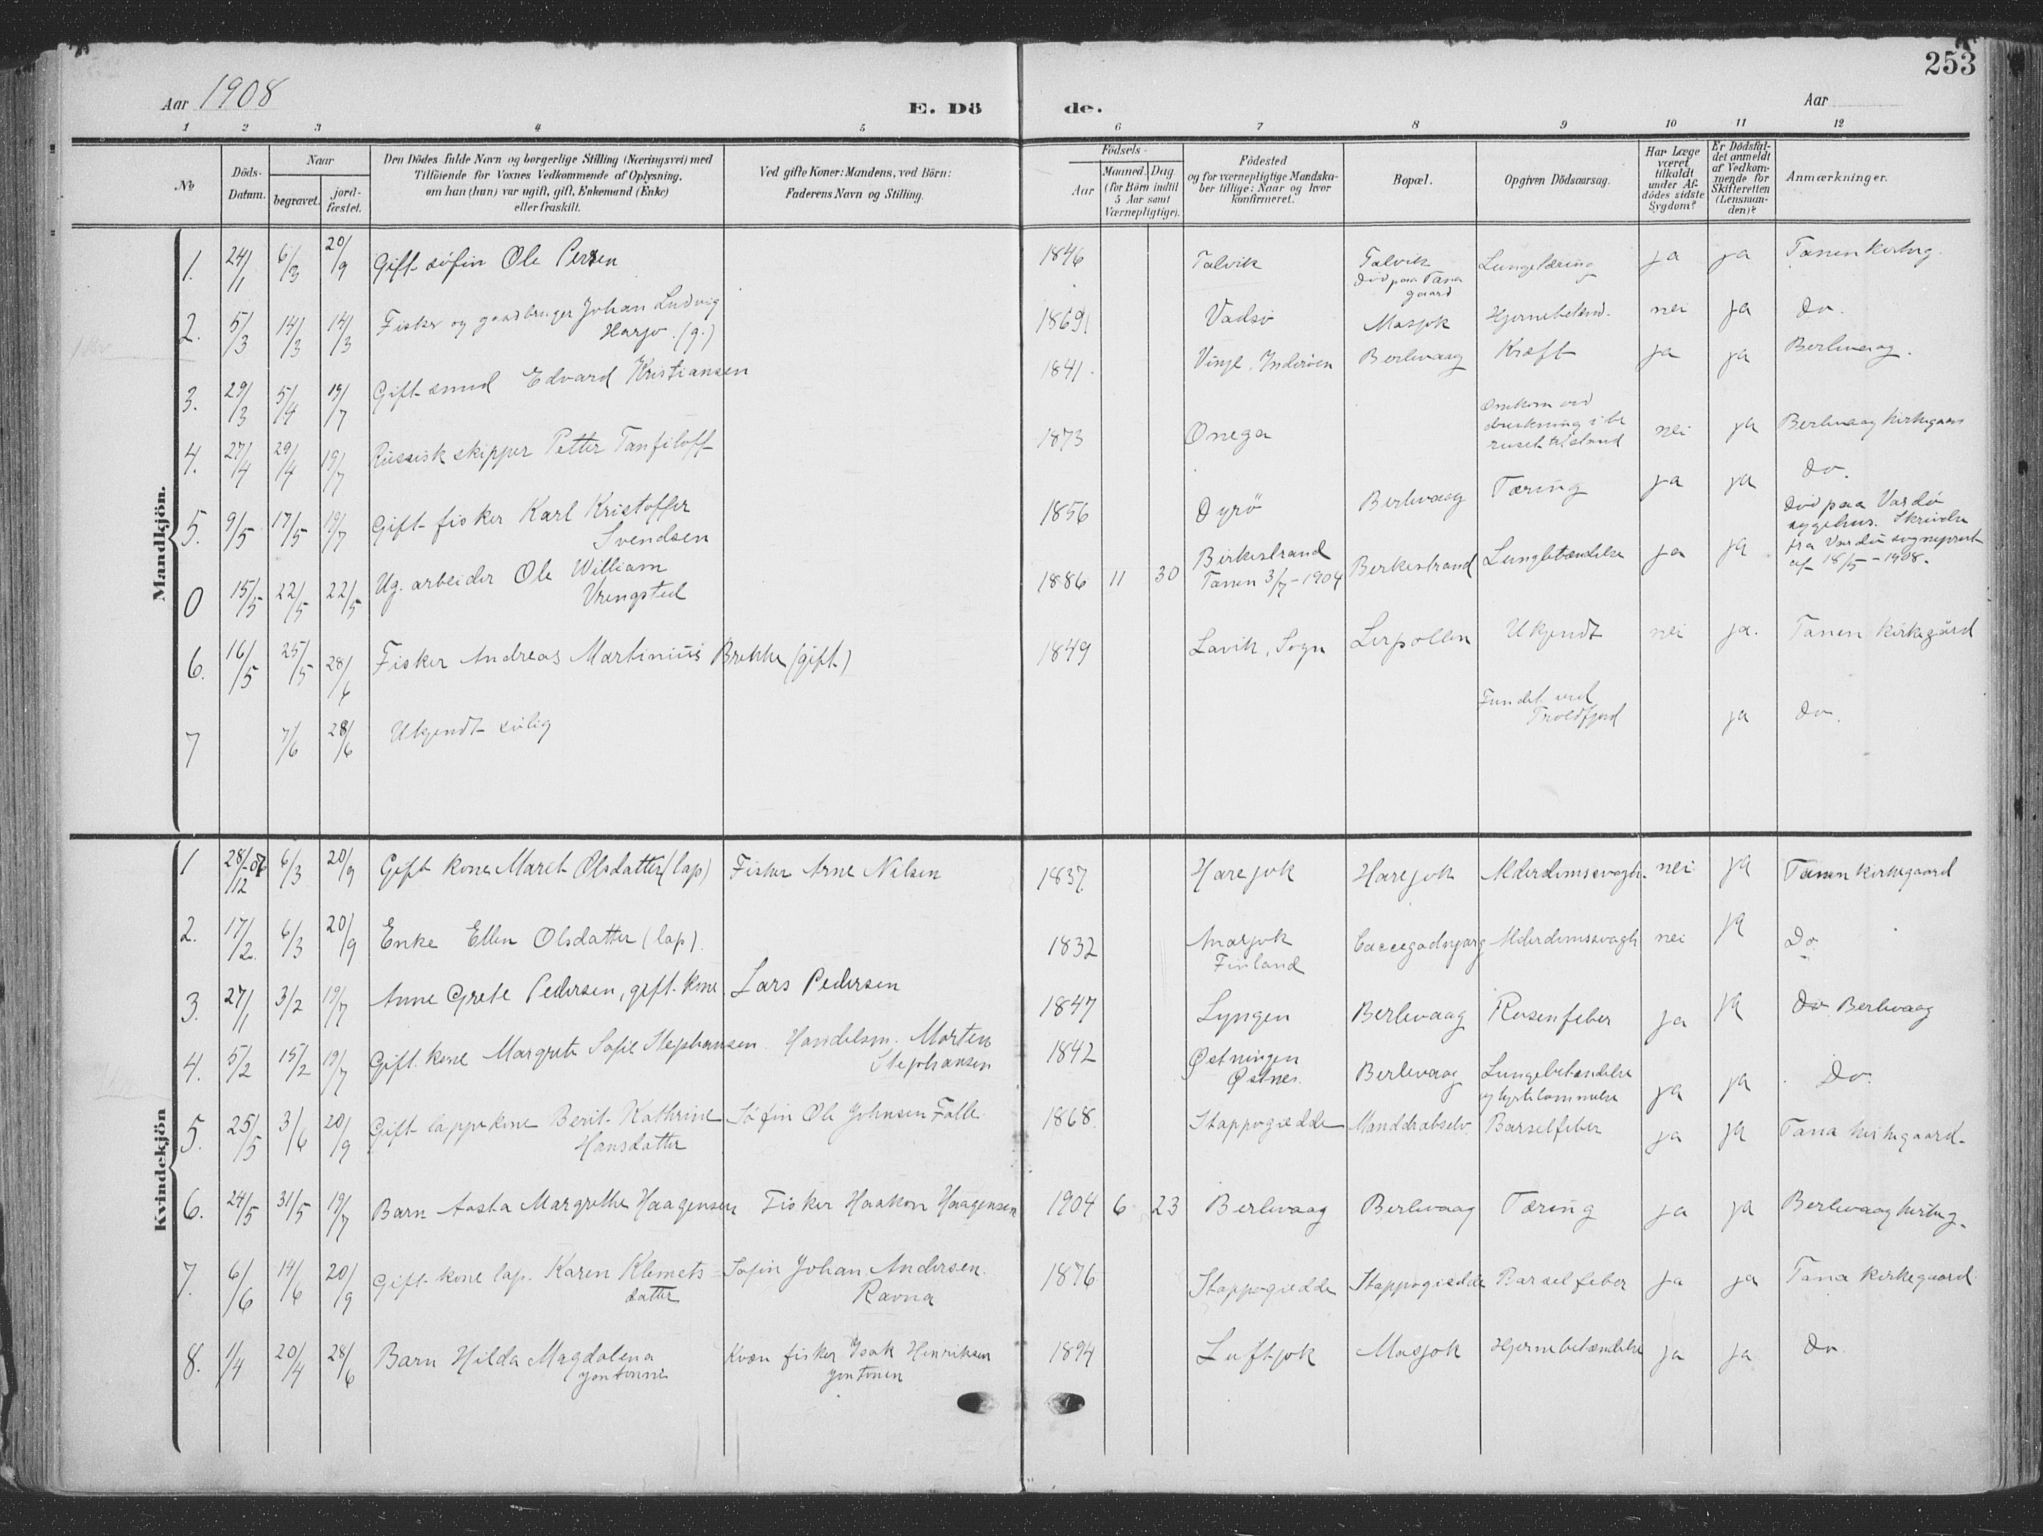 253
Aar 1908
E. Dö
de.
Aar
1 2 3 4 5 6 7 8 9 10 11 12
No
Döds-Datum.
Naar
begravet.
jord-fæstet.
Den Dödes fulde Navn og borgerlige Stilling (Næringsvei) med
Tilföiende for Voxnes Vedkommende af Oplysning,
om han (hun) var ugift, gift, Enkemand (Enke)
eller fraskilt.
Ved gifte Koner: Mandens, ved Börn:
Faderens Navn og Stilling.
Födsels-
Aar
Maaned, Dag
(for Börn indtil
5 Aar samt
Værnepligtige).
Födested
og for værnepligtige Mandska-
ber tillige: Naar og hvor
konfirmeret.
Bopæl.
Opgiven Dödsaarsag.
Har Læge
været
tilkaldt
under Af-
dödes sidste
Sygdom?
Er Dödsfal-
det anmeldt
af Vedkom-
mende for
Skifteretten
(Lensman-
den)?
Anmærkninger.
Mandkjön.
1. 24/1 6/3 20/9 Gift søfin Ole Persen 1846 Talvik Talvik
Död paa Tana
gaard
Lungetæring ja ja Tanen kirkeg.
2. 5/3 14/3 14/3 Fisker og gaardbruger Johan Ludvig
Harjo. (g.) 1869 Vadsø Masjok Hjernebetænd. nei ja Do.
3. 29/3 5/4 19/7 Gift smed Edvard Kristiansen 1841. Vinje, Inderøen Berlevaag Kræft ja ja Berlevaag.
4. 27/4 29/4 19/7 Russisk skipper Petter Tanfiloff 1873 Onega Omkom ved
drukning i be
ruset tilstand nei ja Berlevaag kirkegaard
5. 9/5 17/5 19/7 Gift fisker Karl Kristoffer
Svendsen 1856 Dyrø Berlevaag Tæring ja ja Do.
0 15/5 22/5 22/5 Ug. arbeider Ole William
Vrengsted 1886 11 30 Birkestrand
Tanen 3/7-1904 Berkestrand Lungebetændelse ja ja Död paa Vardø
sygehus. Skrivelse
fra Vardø sogneprest
af 18/5-1908.
6. 16/5 25/5 28/6 Fisker Andreas Martinius Brekke (gift) 1849 Lavik, Sogn Lerpollen Ukjendt nei ja. Tanen kirkegård
7 7/6 28/6 Ukjendt sølig Fundet ved
Troldfjord ja Do.
Kvindekjön
1 28/12-07 6/3 20/9 Gift kone Maret Olsdatter (lap) Fisker Arne Nilsen 1837 Harejok Harejok Alderdomssvagh. nei ja Tanen kirkegaard
2. 17/2 6/3 20/9 Enke Ellen Olsdatter (lap). 1832 Anarjok
Finland Alderdomssvagh nei ja Do
3. 27/1 3/2 19/7 Anne Grete Pedersen, gift kone. Lars Pedersen 1847 Lyngen Berlevaag Rosenfeber ja ja Do Berlevaag
4. 5/2 15/2 19/7 Gift kone Margrete Sofie Stephansen Handelsm. Morten
Stephansen 1842 Østningen
Østnes. Berlevaag Lungebetændelse
ja ja Do.
5. 25/5 3/6 20/9 Gift lappekone Berit Kathrine
Hansdatter Søfin Ole Johnsen Falle 1868. Stappogiedde Barselfeber ja ja Tana kirkegaard.
6. 24/5 31/5 19/7 Barn Aasta Margrethe Haagensen Fisker Haakon Haagensen 1904 6 23 Berlevaag Berlevaag Tæring ja ja Berlevaag kirkeg.
7. 6/6 14/6 20/9 Gift kone lap. Karen Klemets-
datter Søfin Johan Andersen.
Ravna 1876 Stappogiedde Stappogiedde Barselfeber ja ja Tana kirkegaard.
8. 1/4 20/4 28/6 Barn Hilda Magdalena
Kvæn fisker Isak Henriksen
1894 Luftjok Masjok Hjernebetændelse ja ja Do